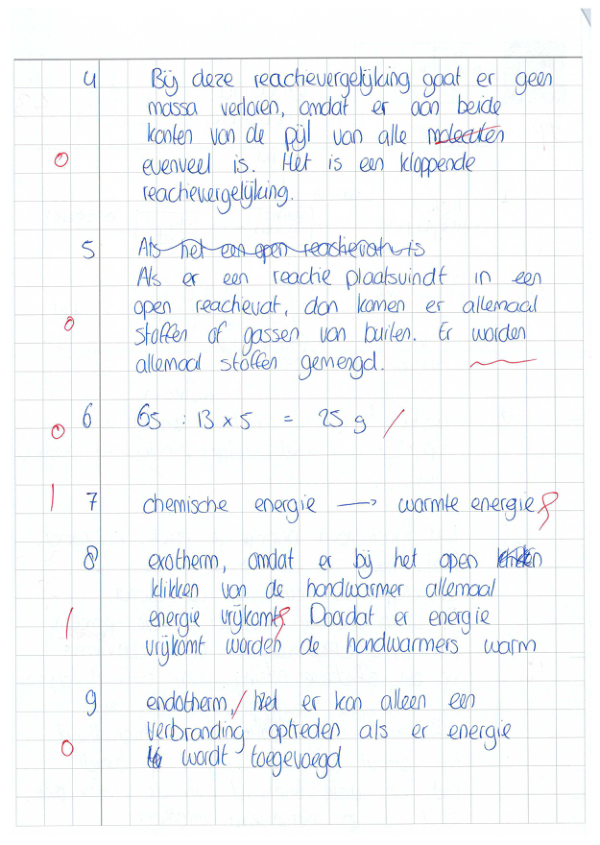 4 Bij deze reachevergelijking gaat er geen
massa verloren, omdat er aan beide
kanten van de pijl van alle molecuten
0 evenveel is. Het is een kloppende
reachevergelijking.
5 Als het een open reachevat is
Als er een reactie plaatsvindt in een
open reachevat, dan komen er allemaal
0 stoffen of gassen van buiten. Er worden
allemaal stoffen gemengd.
0 6 65 : 13 x 5 = 25 g
1 7 chemische energie → warmte energie
8 exotherm, omdat er bij het open
klikken van de handwarmer allemaal
1 energie vrijkomt. Doordat er energie
vrijkomt worden de handwarmers warm
9 endotherm, er kan alleen een
verbranding optreden als er energie
0 wordt toegevoegd